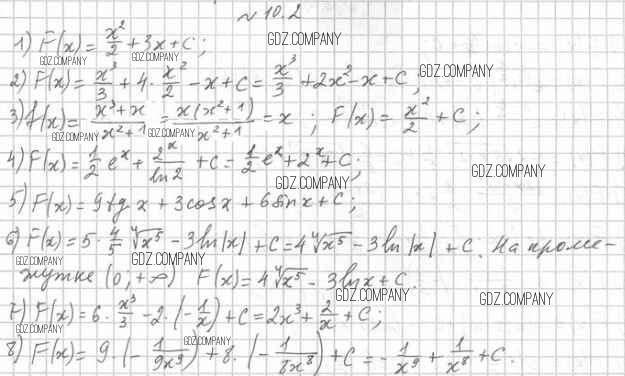 № 10.2
1) F(x) = x²/2 + 3x + C;
GDZ.COMPANY
GDZ.COMPANY GDZ.COMPANY
2) F(x) = x³/3 + 4 · x²/2 − x + C = x³/3 + 2x² − x + C;
GDZ.COMPANY
3) f(x) = (x³ + x)/(x² + 1) = x(x² + 1)/(x² + 1) = x ; F(x) = x²/2 + C;
GDZ.COMPANY GDZ.COMPANY
4) F(x) = 1/2 eˣ + 2ˣ/ln 2 + C = 1/2 eˣ + 2ˣ + C;
GDZ.COMPANY
GDZ.COMPANY
5) F(x) = 9 tg x + 3 cos x + 6 sin x + C;
6) F(x) = 5 · 4/5 ⁴√x⁵ − 3 ln|x| + C = 4 ⁴√x⁵ − 3 ln|x| + C. На проме-
GDZ.COMPANY GDZ.COMPANY
жутке (0; +∞) F(x) = 4 ⁴√x⁵ − 3 ln x + C.
GDZ.COMPANY GDZ.COMPANY
7) F(x) = 6 · x³/3 − 2 · (−1/x) + C = 2x³ + 2/x + C;
GDZ.COMPANY GDZ.COMPANY
8) F(x) = 9 · (−1/9x⁹) + 8 · (−1/8x⁸) + C = −1/x⁹ + 1/x⁸ + C.
GDZ.COMPANY